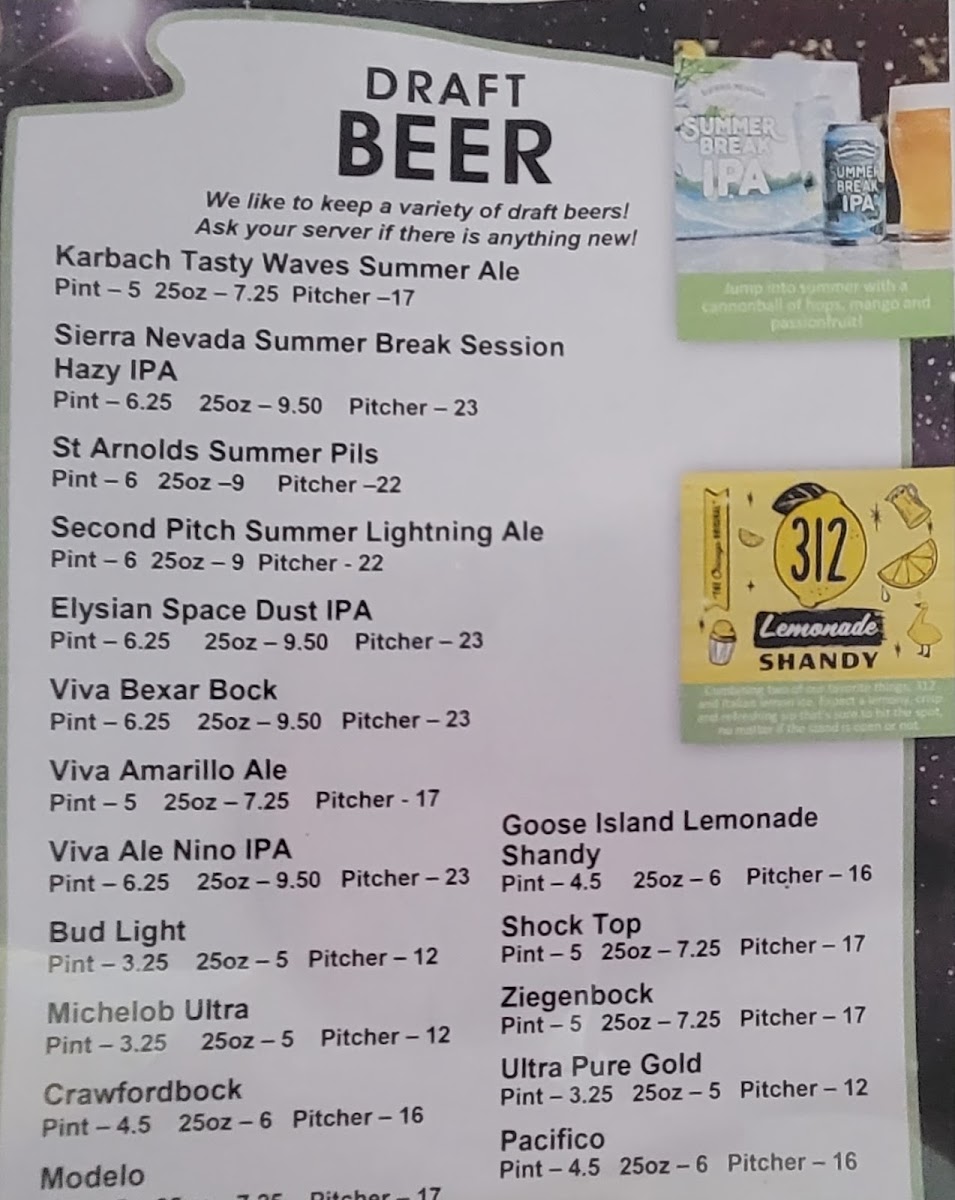 DRAFT
BEER
We like to keep a variety of draft beers!
Ask your server if there is anything new!
Karbach Tasty Waves Summer Ale
Pint – 5 25oz – 7.25 Pitcher –17
Sierra Nevada Summer Break Session
Hazy IPA
Pint – 6.25 25oz – 9.50 Pitcher – 23
St Arnolds Summer Pils
Pint – 6 25oz –9 Pitcher –22
Second Pitch Summer Lightning Ale
Pint – 6 25oz – 9 Pitcher - 22
Elysian Space Dust IPA
Pint – 6.25 25oz – 9.50 Pitcher – 23
Viva Bexar Bock
Pint – 6.25 25oz – 9.50 Pitcher – 23
Viva Amarillo Ale
Pint – 5 25oz – 7.25 Pitcher - 17
Viva Ale Nino IPA
Pint – 6.25 25oz – 9.50 Pitcher – 23
Bud Light
Pint – 3.25 25oz – 5 Pitcher – 12
Michelob Ultra
Pint – 3.25 25oz – 5 Pitcher – 12
Crawfordbock
Pint – 4.5 25oz – 6 Pitcher – 16
Modelo
7.25 Pitcher – 17
SIERRA NEVADA
SUMMER
BREAK
IPA
UMME
BREAK
IPA
Jump into summer with a
cannonball of hops, mango and
passionfruit!
THE Chicago ORIGINAL
312
Lemonade
SHANDY
Combining two of our favorite things, 312
and Italian lemon ice. Expect a lemony, crisp
and refreshing sip that's sure to hit the spot,
no matter if the stand is open or not.
Goose Island Lemonade
Shandy
Pint – 4.5 25oz – 6 Pitcher – 16
Shock Top
Pint – 5 25oz – 7.25 Pitcher – 17
Ziegenbock
Pint – 5 25oz – 7.25 Pitcher – 17
Ultra Pure Gold
Pint – 3.25 25oz – 5 Pitcher – 12
Pacifico
Pint – 4.5 25oz – 6 Pitcher – 16